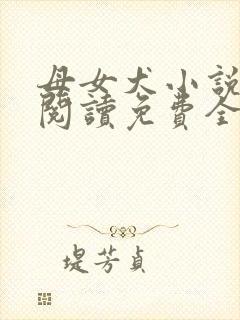 母女犬小說
閱讀免費全
堤芳貞